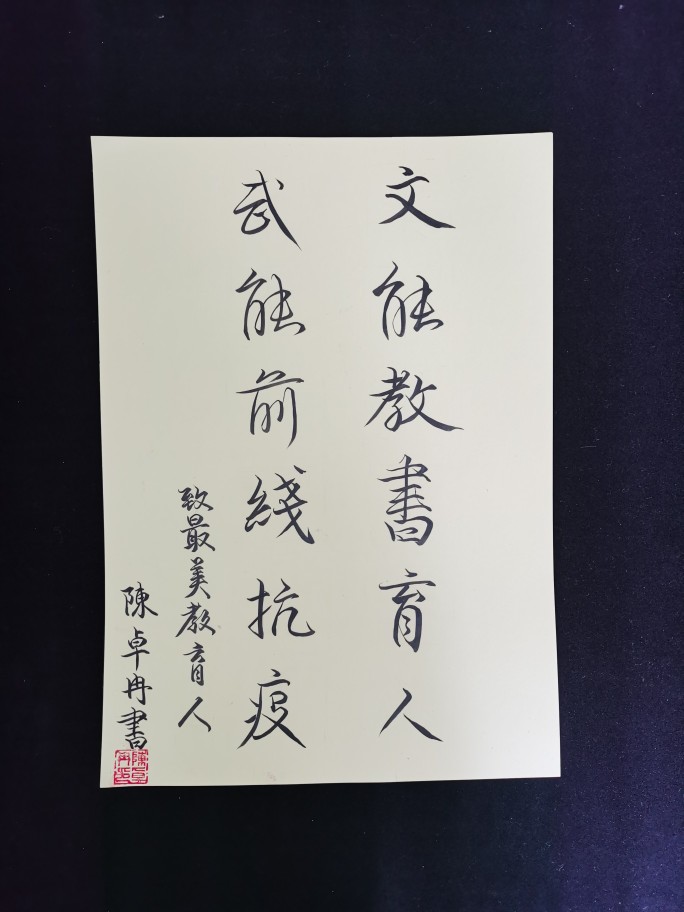 文能教書育人
武能前綫抗疫
致最美教育人
陳卓冉書